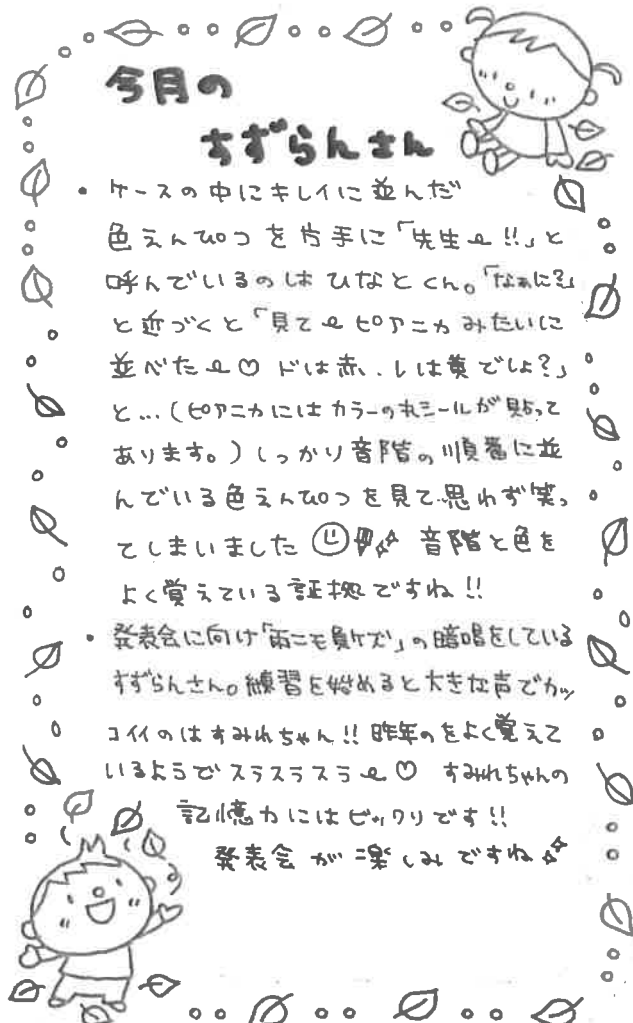 今月の
すずらんさん
・ケースの中にキレイに並んだ
色えんぴつを片手に「先生〜!!」と
呼んでいるのはひなとくん。「なぁに?」
と近づくと「見て〜ピアニカみたいに
並べた〜♡ ドは赤、レは黄でしょ?」
と...(ピアニカにはカラーの丸シールが貼って
あります。)しっかり音階の順番に並
んでいる色えんぴつを見て思わず笑っ
てしまいました 音階と色を
よく覚えている証拠ですね!!
・発表会に向け「雨ニモ負ケズ」の暗唱をしている
すずらんさん。練習を始めると大きな声でカッ
コイイのはすみれちゃん!! 昨年のをよく覚えて
いるようでスラスラスラ〜♡ すみれちゃんの
記憶力にはビックリです!!
発表会が楽しみですね